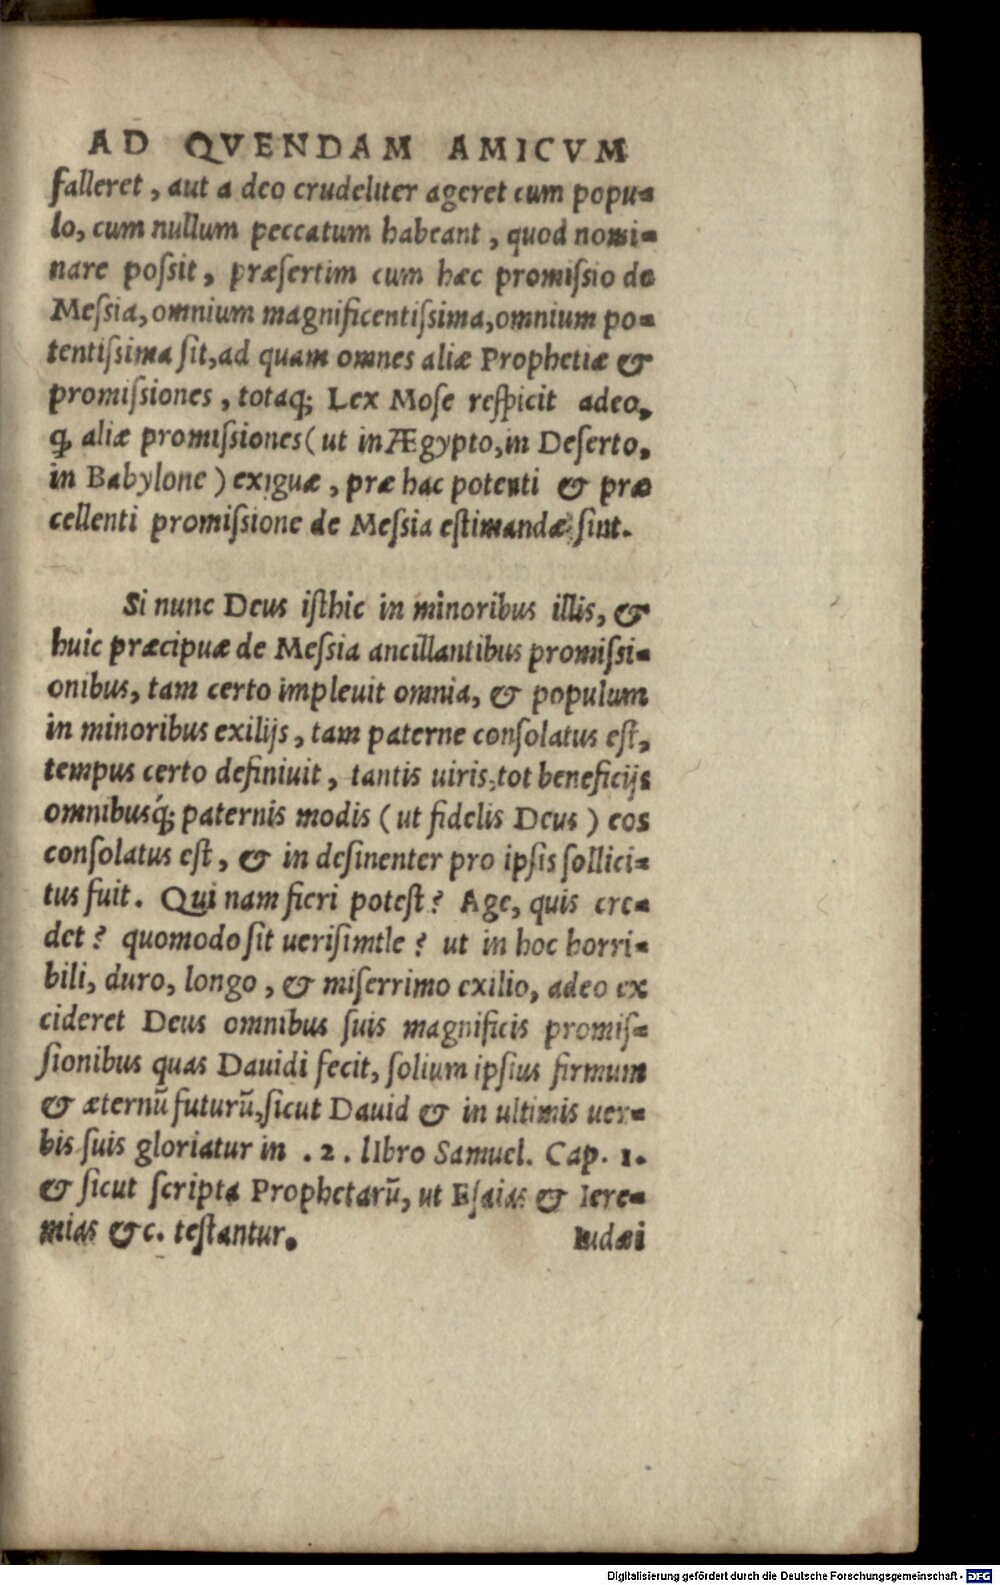 AD QVENDAM AMICVM
falleret, aut a deo crudeliter ageret cum popu-
lo, cum nullum peccatum habeant, quod nomi-
nare poſsit, præſertim cum hæc promiſsio de
Meſsia, omnium magnificentiſsima, omnium po-
tentiſsima ſit, ad quam omnes aliæ Prophetiæ &
promiſsiones, totaq; Lex Moſe reſpicit adeo,
ꝗ aliæ promiſsiones (ut in Ægypto, in Deſerto,
in Babylone) exiguæ, præ hac potenti & præ
cellenti promiſsione de Meſsia eſtimandæ ſint.
Si nunc Deus iſthic in minoribus illis, &
huic præcipuæ de Meſsia ancillantibus promiſsi-
onibus, tam certo impleuit omnia, & populum
in minoribus exilijs, tam paterne conſolatus eſt,
tempus certo definiuit, tantis uiris, tot beneficijs
omnibusq́; paternis modis (ut fidelis Deus) eos
conſolatus eſt, & in deſinenter pro ipſis ſollici-
tus fuit. Qui nam fieri poteſt? Age, quis cre-
det? quomodo ſit ueriſimtle? ut in hoc horri-
bili, duro, longo, & miſerrimo exilio, adeo ex
cideret Deus omnibus ſuis magnificis promiſ-
ſionibus quas Dauidi fecit, ſolium ipſius firmum
& æternũ futurũ, ſicut Dauid & in ultimis uer-
bis ſuis gloriatur in .2. lIbro Samuel. Cap. 1.
& ſicut ſcripta Prophetarũ, ut Eſaias & Iere-
mias &c. teſtantur.
Iudæi
Digitalisierung gefördert durch die Deutsche Forschungsgemeinschaft - DFG